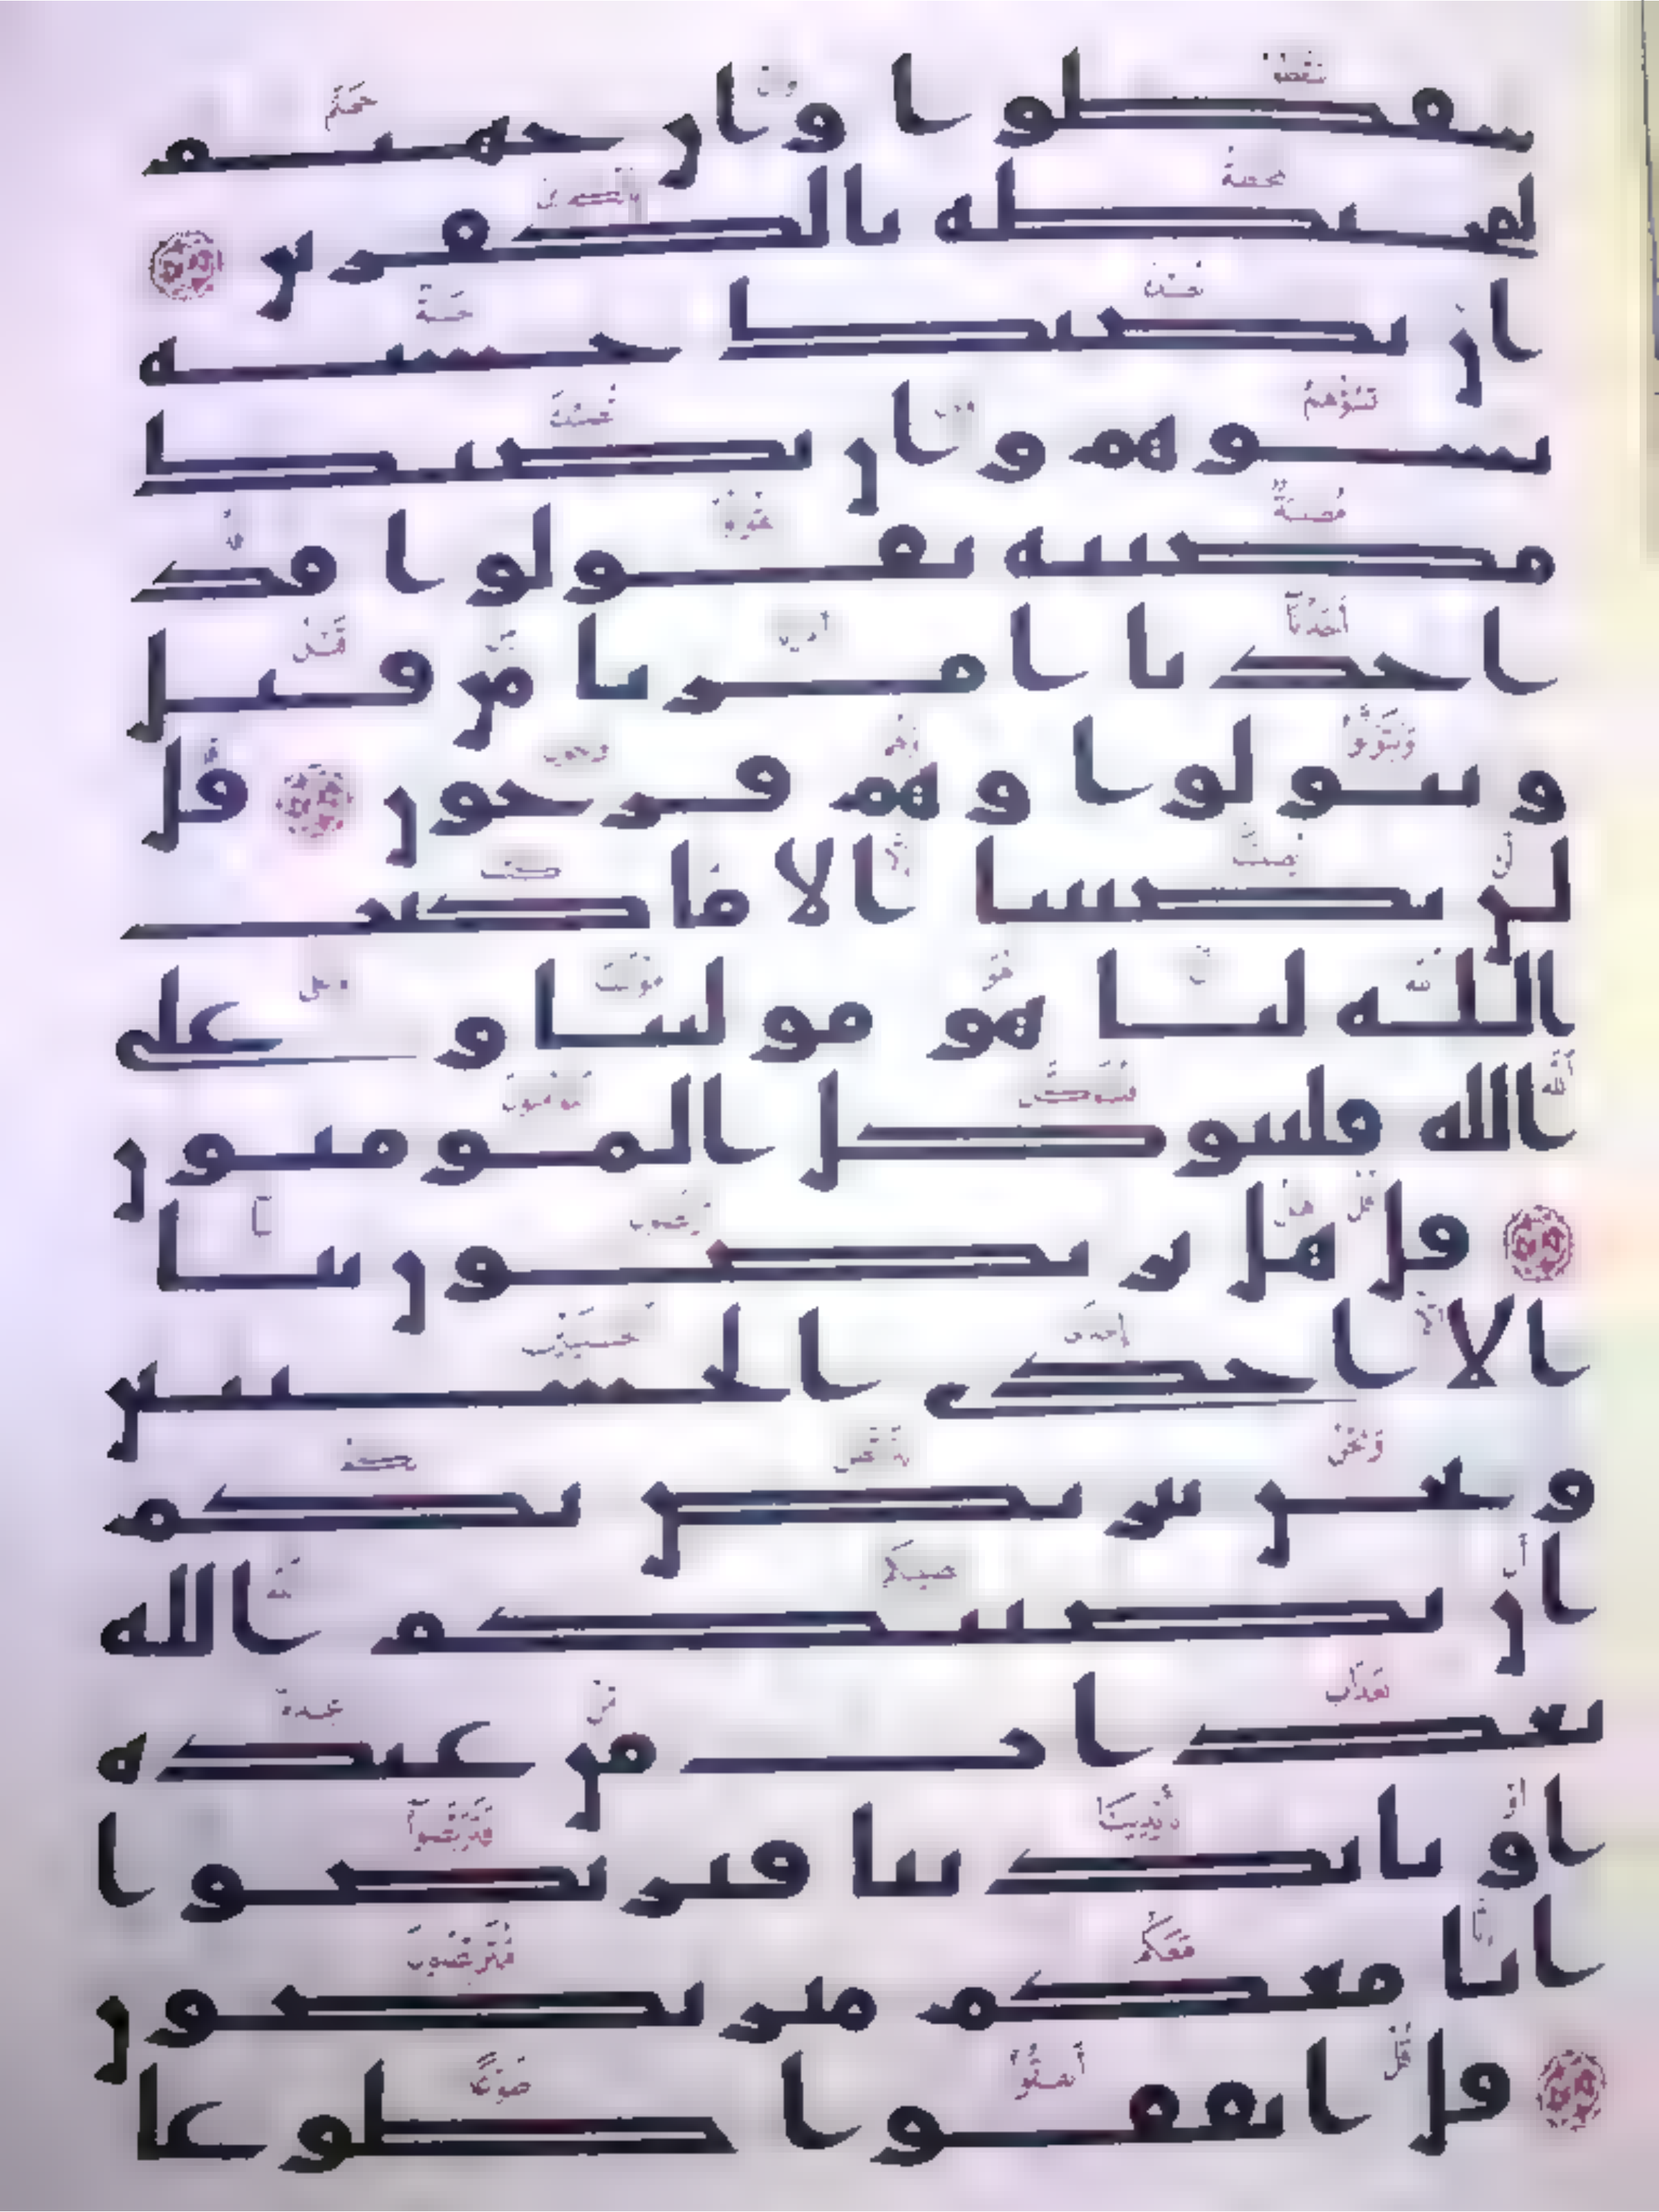 سقطوا وان جهنم
لمحيطة بالكفرين
ان تصبك حسنة
تسوهم وان تصبك
مصيبة يقولوا قد
اخذنا امرنا من قبل
ويتولوا وهم فرحون قل
لن يصيبنا الا ما كتب
الله لنا هو مولينا وعلى
الله فليتوكل المومنون
قل هل تربصون بنا
الا احدى الحسنيين
ونحن نتربص بكم
ان يصيبكم الله
بعذاب من عنده
او بايدينا فتربصوا
انا معكم متربصون
قل انفقوا طوعا